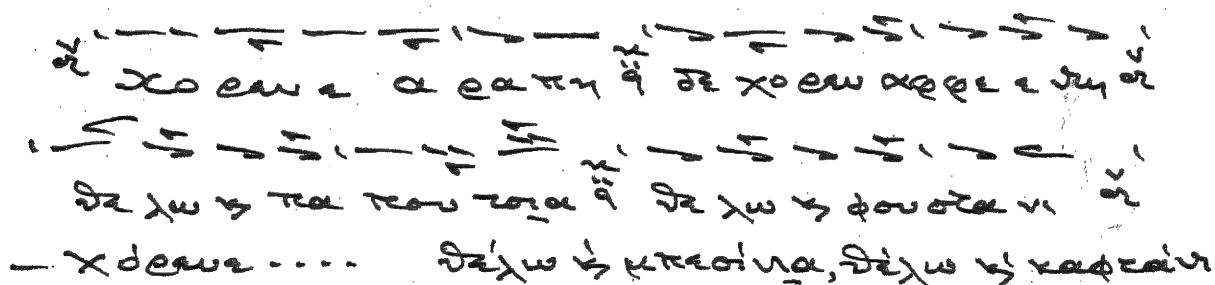 χο ρευ ε α ρα πη δε χο ρευ αρρε ε νη
θε λω κ πα που τσια θε λω κ φου στα νι
— χόρευε .... θέλω κ μπεσίνια, θέλω κ καφτάνι